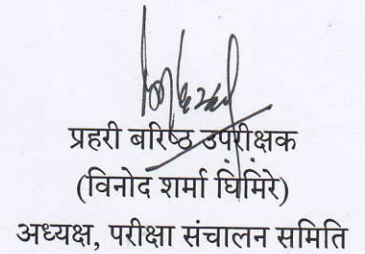 प्रहरी बरिष्ठ उपरीक्षक
(विनोद शर्मा घिमिरे)
अध्यक्ष, परीक्षा संचालन समिति